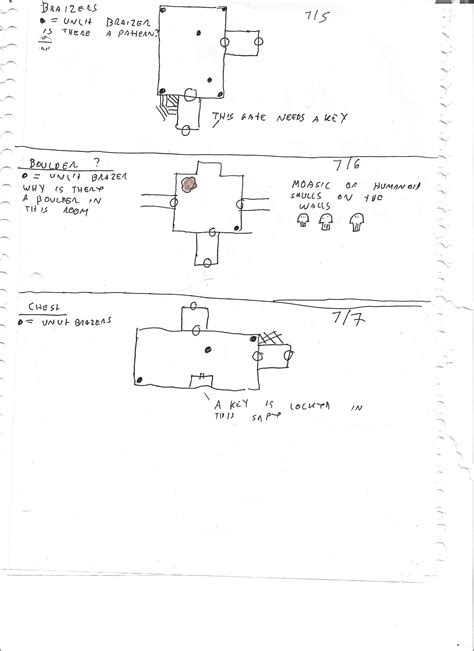 BRAIZERS
7/5
● = UNLIT BRAIZER
IS THERE A PATTERN?
THIS GATE NEEDS A KEY
BOULDER ?
7/6
● = UNLIT BRAZER
WHY IS THERE
A BOULDER IN
THIS ROOM
MOASIC OF HUMANOID
SKULLS ON THE
WALLS
CHEST
7/7
● = UNLIT BRAZERS
A KEY IS LOCKED IN
THIS